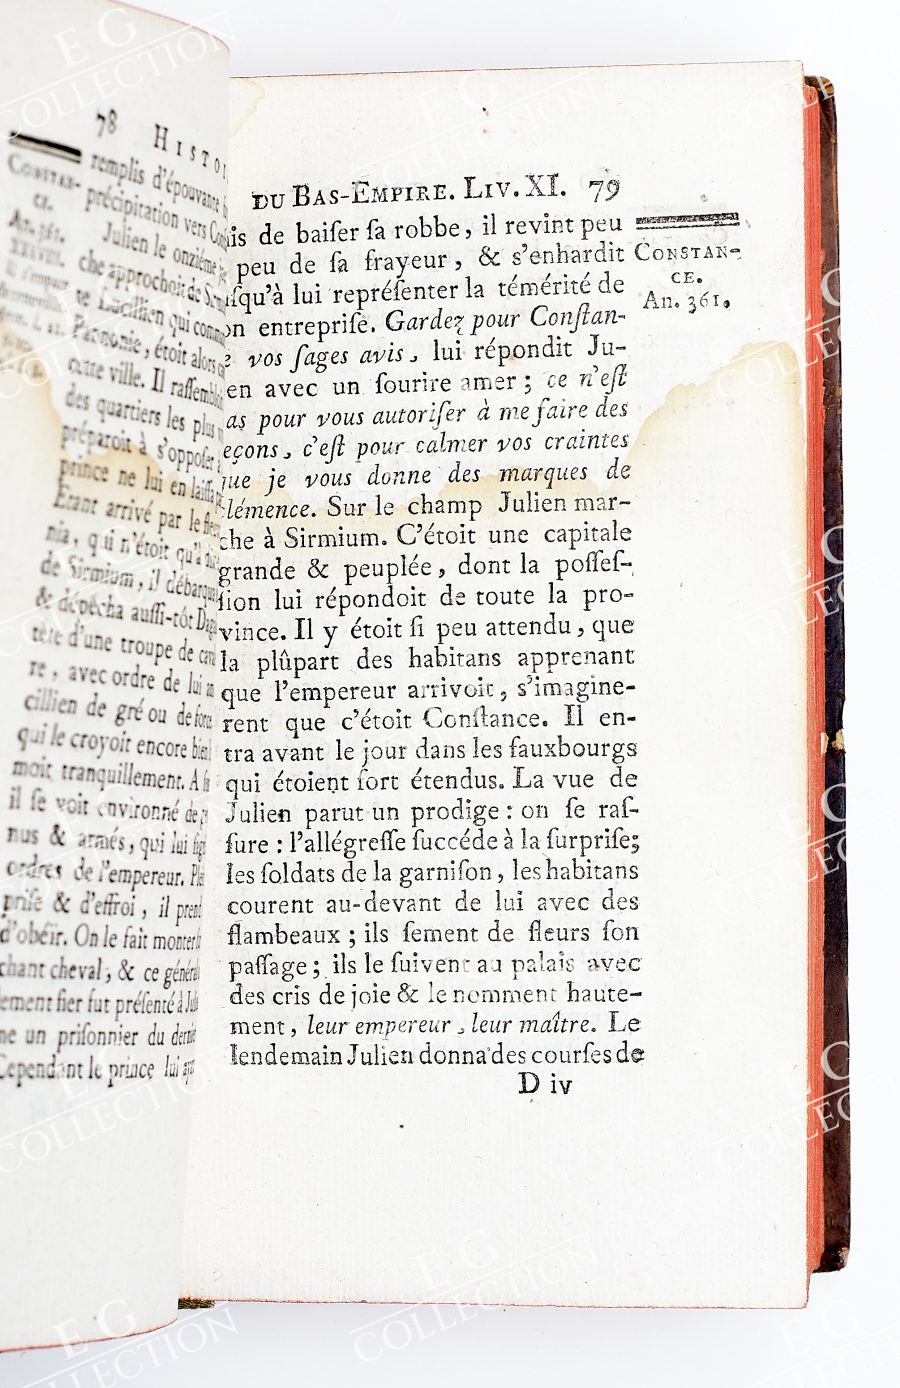 78 HISTOI
CONSTAN-
CE.
An. 361.
XXVIII.
remplis d'épouvante
précipitation vers
Julien le onziéme
che approchoit de
te Lucillien qui
Pannonie, étoit alors
cette ville. Il rassembloit
des quartiers les plus
préparoit à s'opposer
prince ne lui en laissa
Etant arrivé par le
nia, qui n'étoit qu'à
de Sirmium, il débarqua
& dépêcha auſſi-tôt
tête d'une troupe de
re, avec ordre de lui
cillien de gré ou de force
qui le croyoit encore
moit tranquillement. A
il ſe voit environné de
nus & armés, qui lui
ordres de l'empereur.
priſe & d'effroi, il prend
d'obéir. On le fait monter
chant cheval, & ce général
lement fier fut préſenté à
me un priſonnier du
Cependant le prince lui
DU BAS-EMPIRE. LIV. XI. 79
CONSTAN-
CE.
An. 361.
is de baiſer ſa robbe, il revint peu
peu de ſa frayeur, & s'enhardit
uſqu'à lui repréſenter la témérité de
on entrepriſe. Gardez pour Conſtan-
e vos ſages avis, lui répondit Ju-
en avec un ſourire amer ; ce n'eſt
as pour vous autoriſer à me faire des
eçons, c'eſt pour calmer vos craintes
que je vous donne des marques de
clémence. Sur le champ Julien mar-
che à Sirmium. C'étoit une capitale
grande & peuplée, dont la poſſeſ-
ſion lui répondoit de toute la pro-
vince. Il y étoit ſi peu attendu, que
la plûpart des habitans apprenant
que l'empereur arrivoit, s'imagine-
rent que c'étoit Conſtance. Il en-
tra avant le jour dans les fauxbourgs
qui étoient fort étendus. La vue de
Julien parut un prodige : on ſe raſ-
ſure : l'allégreſſe ſuccéde à la ſurpriſe;
les ſoldats de la garniſon, les habitans
courent au-devant de lui avec des
flambeaux ; ils ſement de fleurs ſon
paſſage ; ils le ſuivent au palais avec
des cris de joie & le nomment haute-
ment, leur empereur, leur maître. Le
lendemain Julien donna des courſes de
D iv
EG
COLLECTION